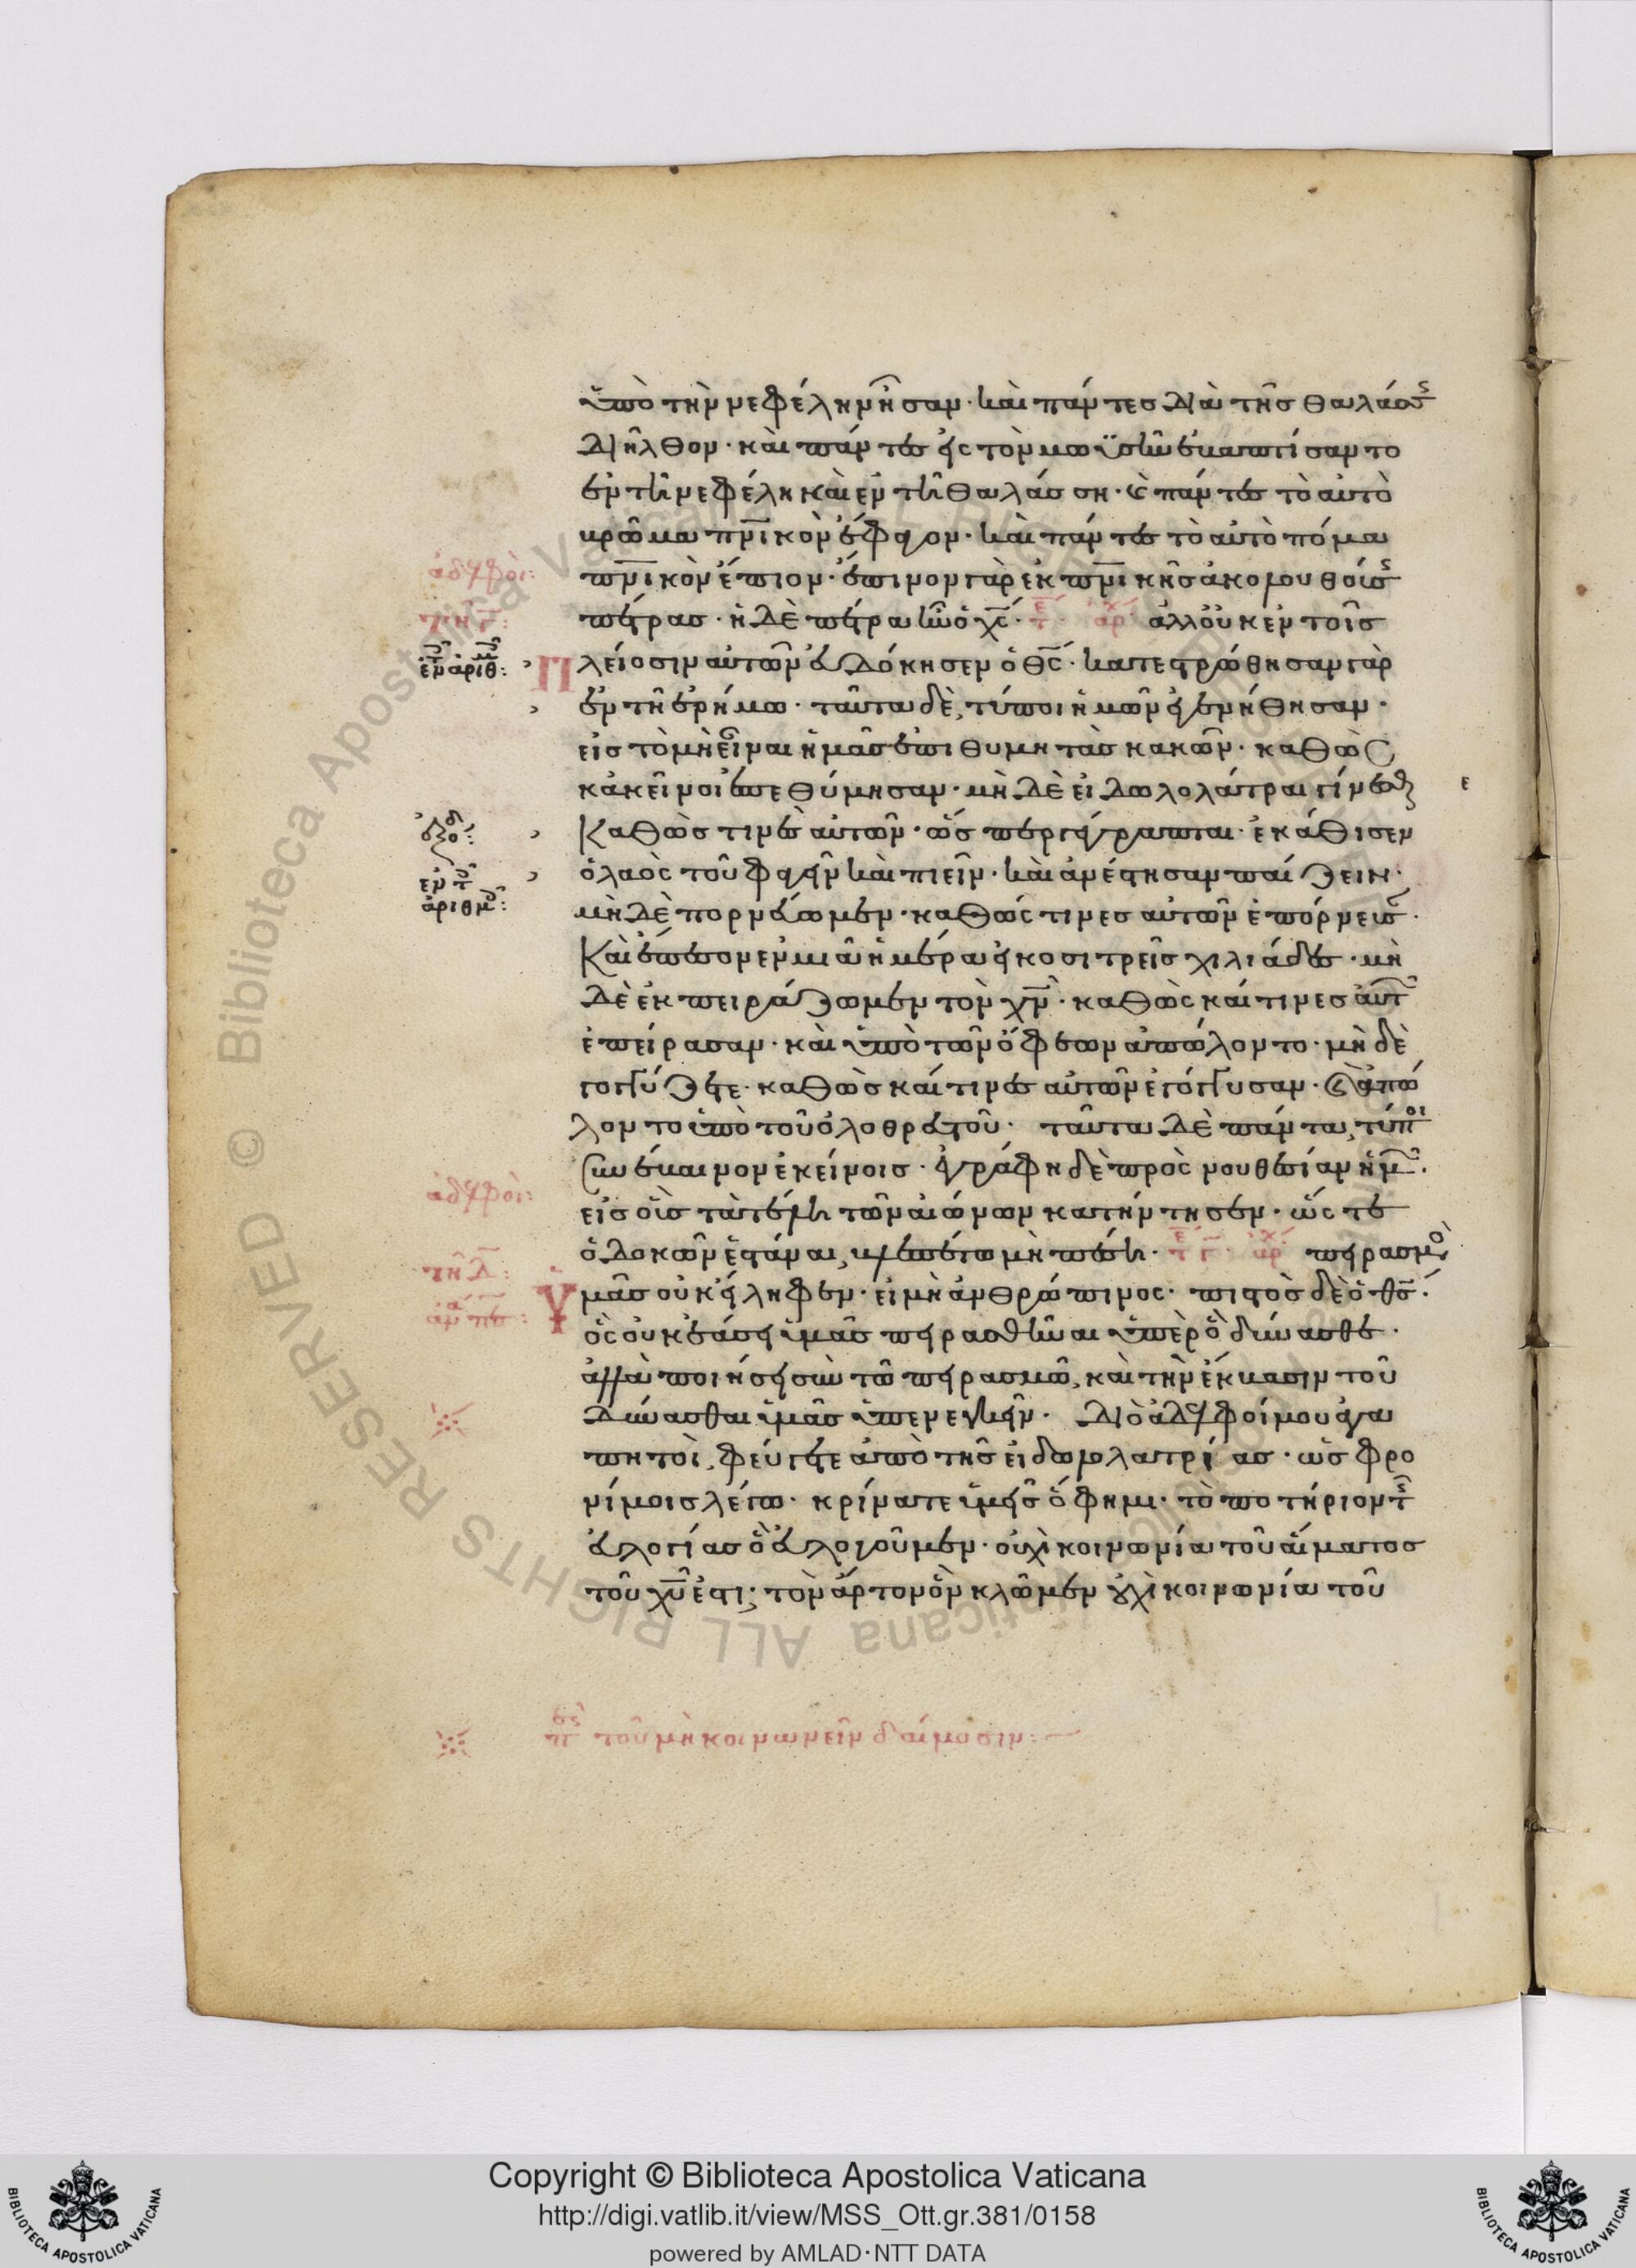 ὑπὸ τὴν νεφέλην ἦσαν· καὶ πάντες διὰ τῆς θαλάσσης
διῆλθον· καὶ πάντες εἰς τὸν μωϋσῆν ἐβαπτίσαντο
ἐν τῆ νεφέλη καὶ ἐν τῆ θαλάσση· καὶ πάντες τὸ αὐτὸ
βρῶμα πν̅ικὸν ἔφαγον· καὶ πάντες τὸ αὐτὸ πόμα
ἀδελφοὶ:
πν̅ικὸν ἔπιον· ἔπινον γὰρ ἐκ πν̅ικῆς ἀκολουθούσης
πέτρας· ἡ δὲ πέτρα ἦν ὁ χς̅· ἀρχ ἀλλ' οὐκ ἐν τοῖς
ἐν ἀριθ:
Πλείοσιν αὐτῶν εὐδόκησεν ὁ θς̅· κατεστρώθησαν γὰρ
ἐν τῆ ἐρήμω· ταῦτα δὲ, τύποι ἡμῶν ἐγενήθησαν·
εἰς τὸ μὴ εἶναι ἡμᾶς ἐπιθυμητὰς κακῶν· καθὼς
κἀκεῖνοι ἐπεθύμησαν· μὴ δὲ εἰδωλολάτραι γίνεσθε
Καθώς τινες αὐτῶν· ὡς περ γέγραπται· ἐκάθισεν
ὁ λαὸς τοῦ φαγεῖν καὶ πιεῖν· καὶ ἀνέστησαν παίζειν·
ἐν τῶ
ἀριθμῶ:
μὴ δὲ πορνεύωμεν· καθώς τινες αὐτῶν ἐπόρνευσαν·
Καὶ ἔπεσον ἐν μιᾶ ἡμέρα εἰκοσιτρεῖς χιλιάδες· μὴ
δὲ ἐκπειράζωμεν τὸν χν̅· καθὼς καί τινες αὐτῶν
ἐπείρασαν· καὶ ὑπὸ τῶν ὄφεων ἀπώλοντο· μὴ δὲ
γογγύζετε· καθὼς καί τινες αὐτῶν ἐγόγγυσαν· καὶ ἀπώ
λοντο ὑπὸ τοῦ ὀλοθρευτοῦ· ταῦτα δὲ πάντα, τύποι
συνέβαινον ἐκείνοις· ἐγράφη δὲ πρὸς νουθεσίαν ἡμῶν·
ἀδελφοὶ:
εἰς οὓς τὰ τέλη τῶν αἰώνων κατήντησεν· ὥς τε
ὁ δοκῶν ἑστάναι, βλεπέτω μὴ πέση· ἀρχ πειρασμὸς
Ὑμᾶς οὐκ εἴληφεν· εἰ μὴ ἀνθρώπινος· πιστὸς δὲ ὁ θς̅·
ὃς οὐκ ἐάσει ὑμᾶς πειρασθῆναι ὑπὲρ ὃ δύνασθε·
ἀλλὰ ποιήσει σὺν τῶ πειρασμῶ, καὶ τὴν ἔκβασιν τοῦ
δύνασθαι ὑμᾶς ὑπενεγκεῖν· Διὸ ἀδελφοί μου ἀγα
πητοὶ, φεύγετε ἀπὸ τῆς εἰδωλολατρίας· ὡς φρο
νίμοις λέγω· κρίνατε ὑμεῖς ὅ φημι· τὸ ποτήριον τῆς
εὐλογίας ὃ εὐλογοῦμεν· οὐχὶ κοινωνία τοῦ αἵματος
τοῦ χυ̅ ἐστι; τὸν ἄρτον ὃν κλῶμεν οὐχὶ κοινωνία τοῦ
περὶ τοῦ μὴ κοινωνεῖν δαίμοσιν:
Copyright © Biblioteca Apostolica Vaticana
http://digi.vatlib.it/view/MSS_Ott.gr.381/0158
powered by AMLAD·NTT DATA
BIBLIOTECA APOSTOLICA VATICANA
BIBLIOTECA APOSTOLICA VATICANA